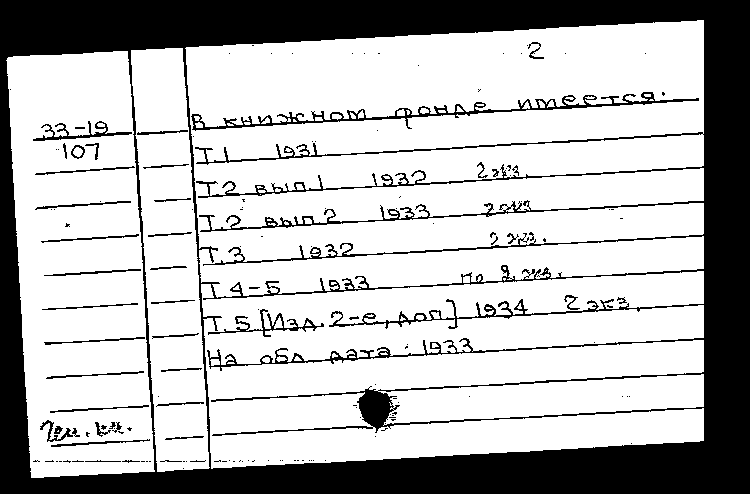 2
В книжном фонде имеется:
33-19
107
Т.1 1931
Т.2 вып.1 1932 2 экз.
Т.2 вып.2 1933 2 экз
Т.3 1932 2 экз.
Т.4-5 1933 по 2 экз.
Т.5 [Изд. 2-е, доп] 1934 2 экз.
На обл. дата: 1933